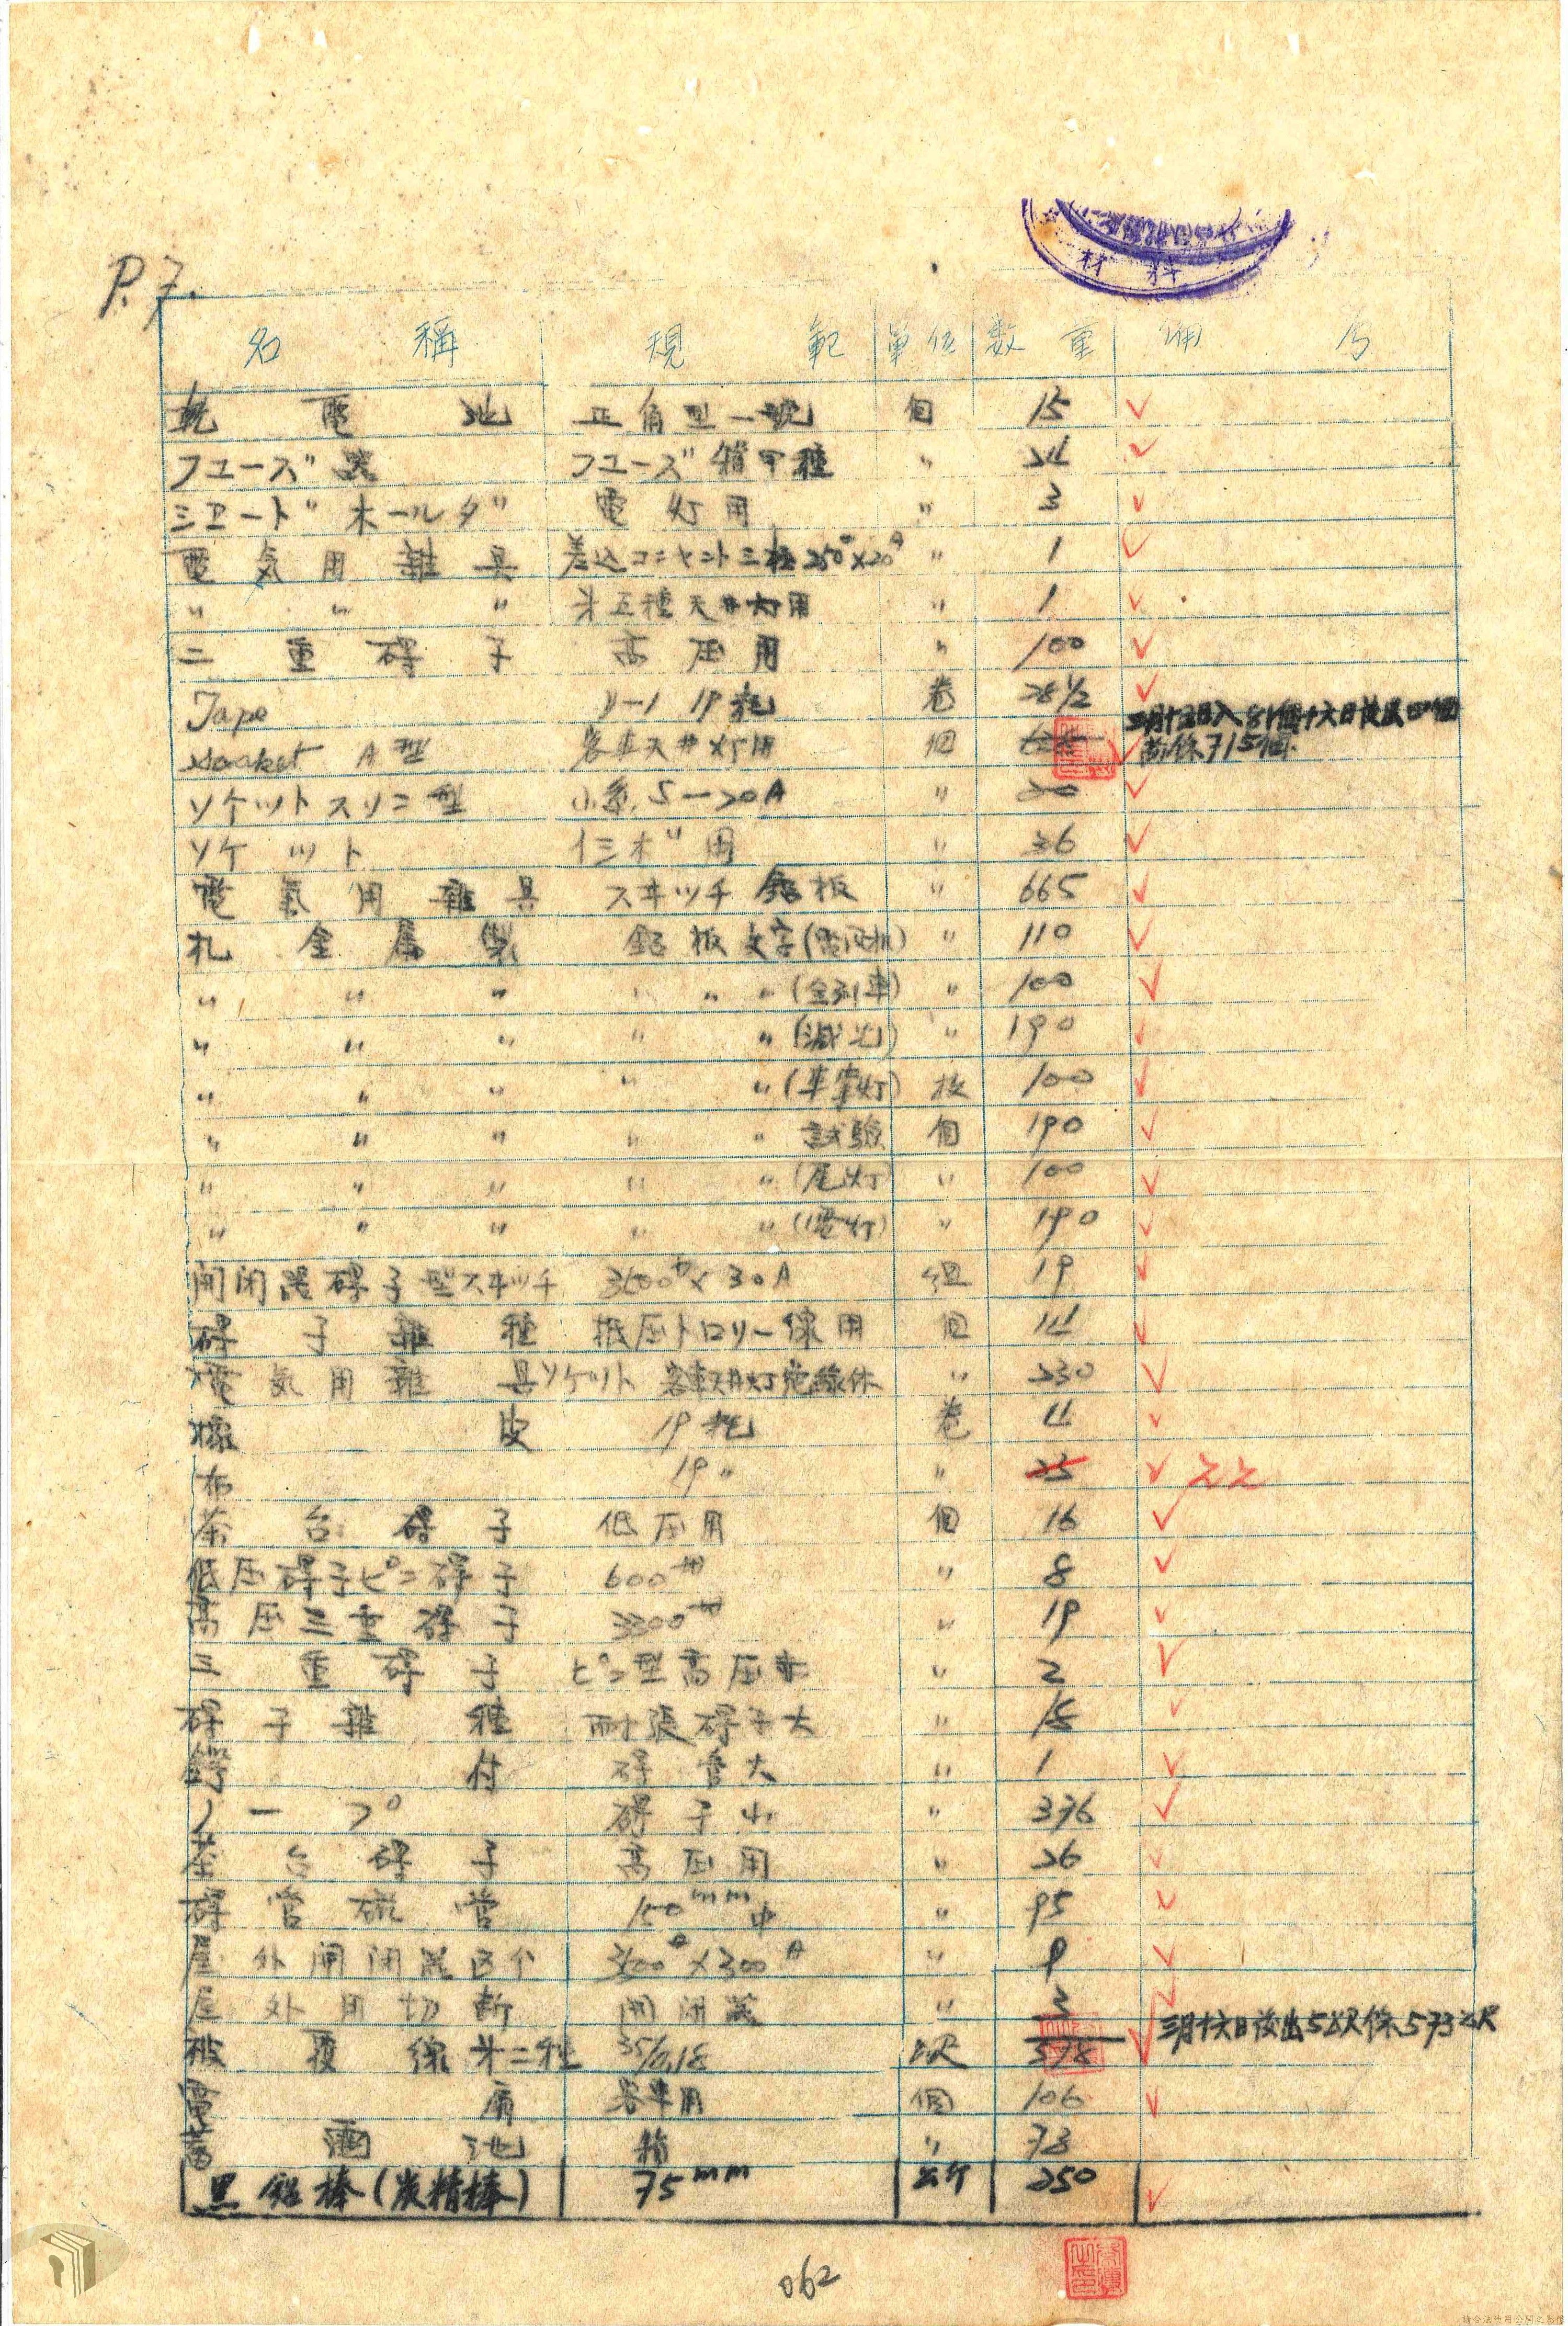 材料
P.7.
名稱 規範 單位 数量 備
乾電池 正角型一號 個 15
フユーズ フユーズ 箱甲種 〃
シエードホールダ 電灯用 〃 3
電気用雜具 差込コンセント三極250ᵛ×20ᴬ 〃 1
〃 〃 〃 才五種天井灯用 〃 1
二重碍子 高圧用 〃 100
Tape 19粍 卷 28 1/2
三月十五日入81個十六日發出四個
Socket A型 客車天井灯用 個 尚餘715個
ソケットスワン型 5-20A 〃 20
ソケット 〃 36
電氣用雜具 スヰツチ銘板 〃 665
札金属製 銘板文字 〃 110
〃 〃 〃 〃 〃 〃 (全列車) 〃 100
〃 〃 〃 〃 〃 (減光) 〃 190
〃 〃 〃 〃 〃 (車掌灯) 枚 100
〃 〃 〃 〃 〃 試驗 個 190
〃 〃 〃 〃 〃 (尾灯) 〃 100
〃 〃 〃 〃 〃 (電灯) 〃 190
開闭器碍子型スヰッチ 3600ᵛ×30A 組 19
碍子雜種 抵圧トロリー線用 個
電気用雜具 ソケット 客車天井灯 〃 230
橡皮 19粍 卷 11
布 19〃 〃 25 22
茶台碍子 低圧用 個 16
低圧碍子ピン碍子 600ᵛ 〃 8
高圧三重碍子 3300ᵛ 〃 19
三重碍子 ピン型高圧 〃 2
碍子雜種 耐張碍子大 〃 15
鍔付 碍管大 〃 1
ノーブ 碍子小 〃 376
茶台碍子 高圧用 〃 26
碍管磁管 150mm中 〃 95
屋外開闭器 ×300ᴬ 〃 9
屋外用切断 開闭器 〃 2
三月十六日發出5公尺餘573公尺
被覆線才二種 35/0.18 公尺 578
電扇 客車用 個 106
蓄電池 箱 〃 73
黑鉛棒(炭精棒) 75mm 公斤 250
062